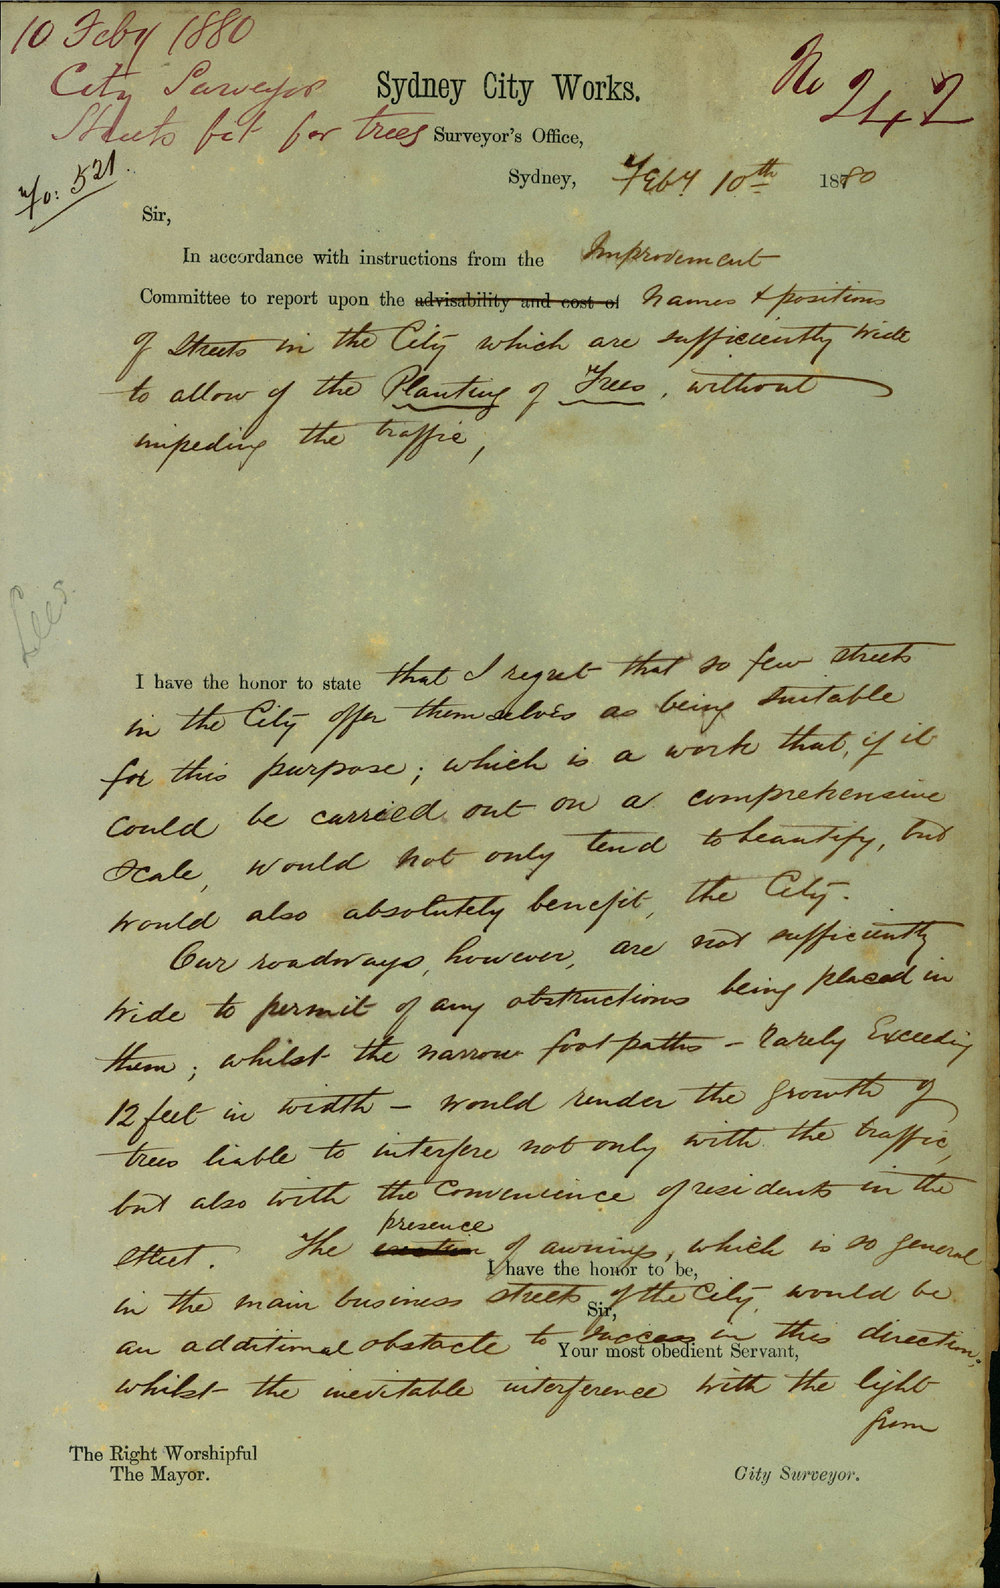 10 Feby 1880
City Surveyor
Streets fit for trees
No 242
Sydney City Works.
Surveyor's Office,
521
Sydney, Feby 10th 1880
Sir,
In accordance with instructions from the Improvement
Committee to report upon the advisability and cost of names & positions
of streets in the City which are sufficiently wide
to allow of the Planting of Trees, without
impeding the traffic,
I have the honor to state that I regret that so few streets
in the City offer themselves as being suitable
for this purpose; which is a work that, if it
could be carried out on a comprehensive
scale, would not only tend to beautify, but
would also absolutely benefit, the City.
Our roadways, however, are not sufficiently
wide to permit of any obstructions being placed in
them; whilst the narrow footpaths – rarely exceeding
12 feet in width – would render the growth of
trees liable to interfere not only with the traffic,
but also with the convenience of residents in the
presence
street. The erection of awnings, which is so general
I have the honor to be,
in the main business streets of the City, would be
Sir,
an additional obstacle to success in this direction.
Your most obedient Servant,
whilst the inevitable interference with the light
from
The Right Worshipful
The Mayor.
City Surveyor.